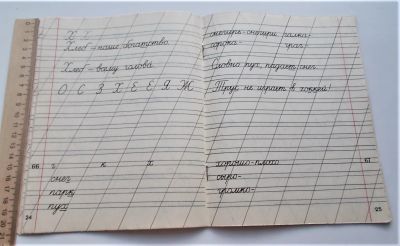 Х х
Хлеб – наше богатство.
Хлеб – всему голова.
О С З Х Е Е Я Ж
66 г к х
снег
парк
пух
24
снегирь-снегири галка-
сорока- грач-
Словно пух, падает снег.
Трус не играет в хоккей!
хорошо-плохо 67
сыро-
громко-
25